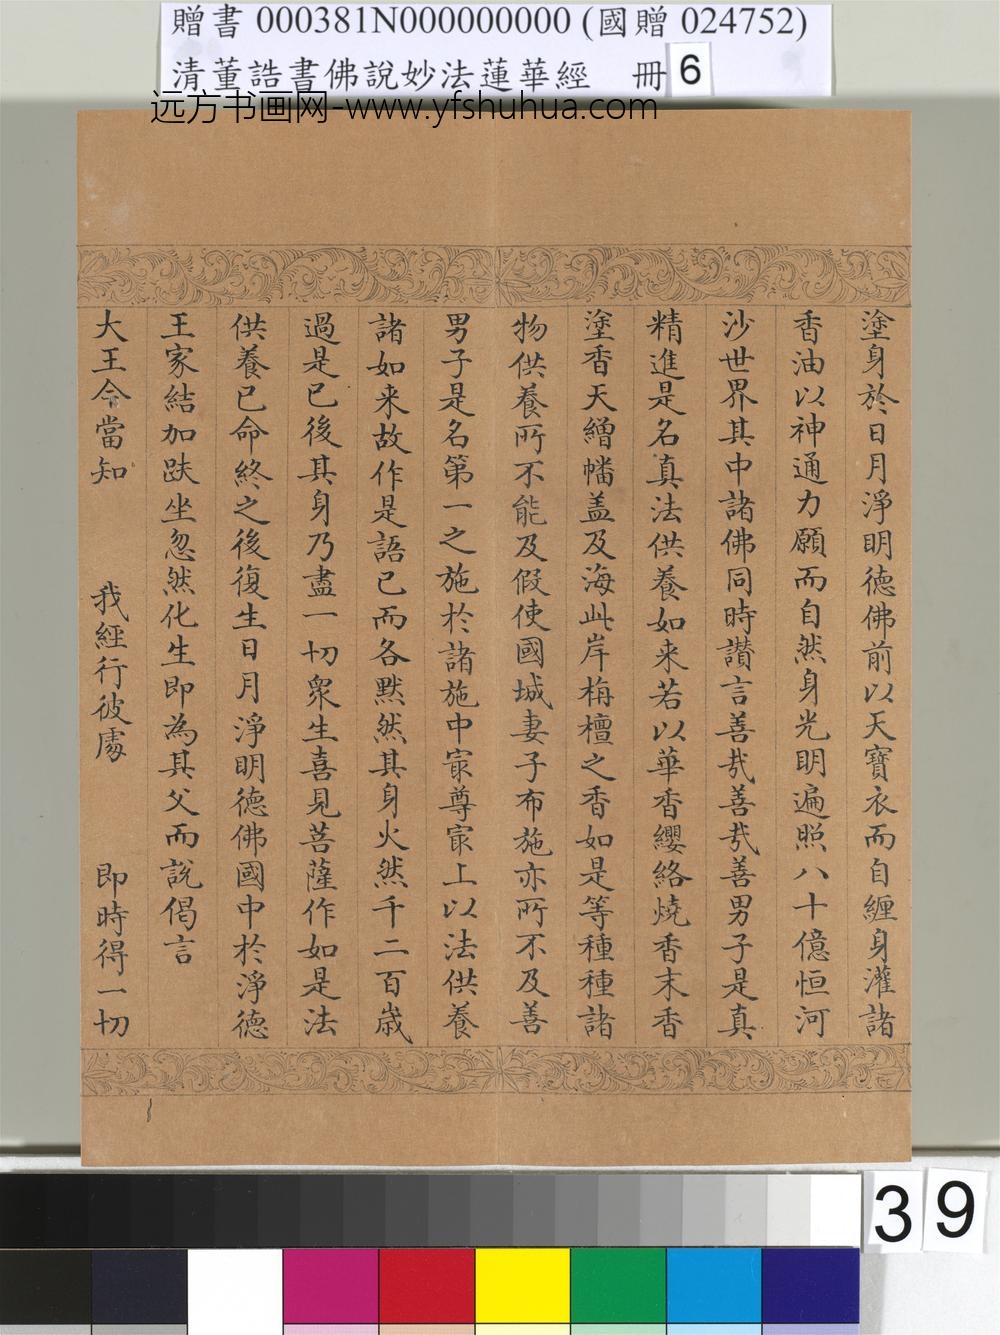 贈書 000381N000000000 (國贈 024752)
清董誥書佛說妙法蓮華經 冊 6
远方书画网-www.yfshuhua.com
塗身於日月淨明德佛前以天寶衣而自纏身灌諸
香油以神通力願而自然身光明遍照八十億恒河
沙世界其中諸佛同時讚言善哉善哉善男子是真
精進是名真法供養如来若以華香纓絡燒香末香
塗香天繒幡盖及海此岸栴檀之香如是等種種諸
物供養所不能及假使國城妻子布施亦所不及善
男子是名第一之施於諸施中㝡尊㝡上以法供養
諸如来故作是語已而各默然其身火然千二百歲
過是已後其身乃盡一切眾生喜見菩薩作如是法
供養已命終之後復生日月淨明德佛國中於淨德
王家結加趺坐忽然化生即為其父而說偈言
大王今當知 我經行彼處 即時得一切
39